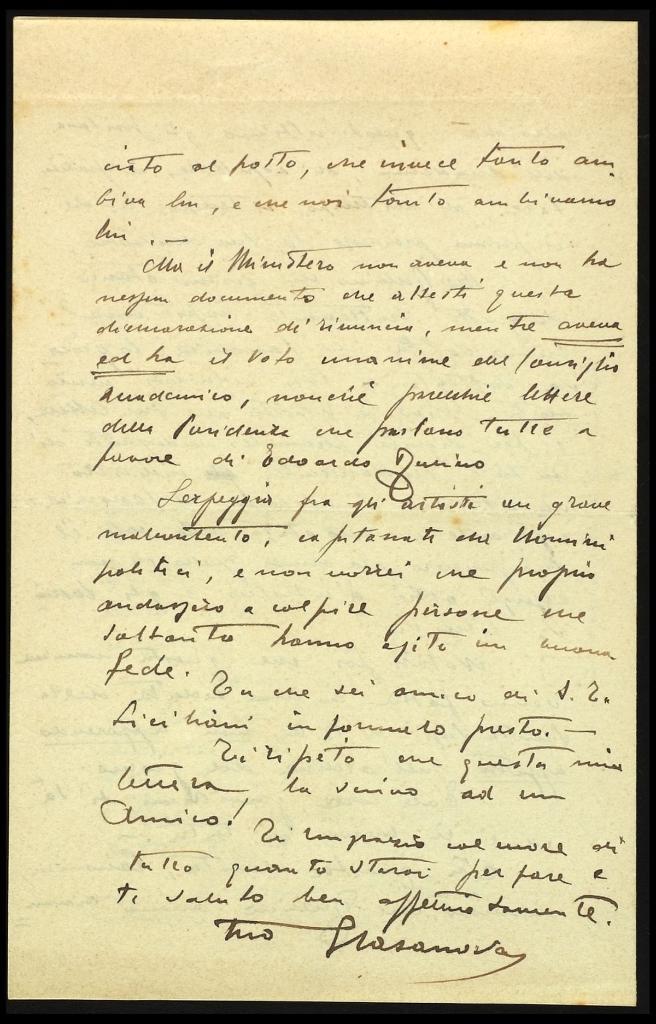 ciato al posto, che invece tanto am
biva lui, e che noi tanto ambivamo
lui. —
Ma il Ministero non aveva e non ha
nessun documento che attesti questa
dichiarazione di rinuncia, mentre aveva
ed ha il voto unanime del Consiglio
Accademico, nonché parecchie lettere
della Presidenza che parlano tutte a
favore di Edoardo Rubino
Serpeggia fra gli artisti un grave
malcontento, capitanati da Uomini
politici, e non vorrei che proprio
andassero a colpire persone che
soltanto hanno agito in buona
fede. Tu che sei amico di S. E.
Siciliani informalo presto. —
Ti ripeto che questa mia
lettera, la scrivo ad un
Amico! Ti ringrazio col cuore di
tutto quanto starai per fare e
ti saluto ben affettuosamente.
tuo